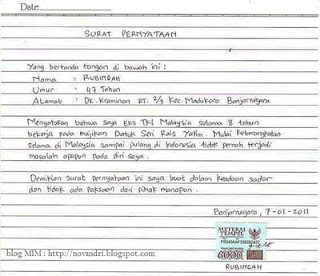 Date
SURAT PERNYATAAN
Yang bertanda tangan di bawah ini :
Nama : RUBINGAH
Umur : 47 Tahun
ALamat : Dk. Kraminan RT. 2/3 Kec Madukoro Banjarnegara
Menyatakan bahwa saya Eks TKI Malaysia selama 8 tahun
bekerja pada majikan Datuk Seri Rais Yatim. Mulai Keberangkatan
selama di Malaysia sampai pulang di Indonesia tidak pernah terjadi
masalah apapun pada diri saya.
Demikian surat pernyataan ini saya buat dalam keadaan sadar
dan tidak ada paksaan dari pihak manapun.
Banjarnegara, 7-01-2011
METERAI
TEMPEL
6000
RUBINGAH
blog MIM : http://novandri.blogspot.com